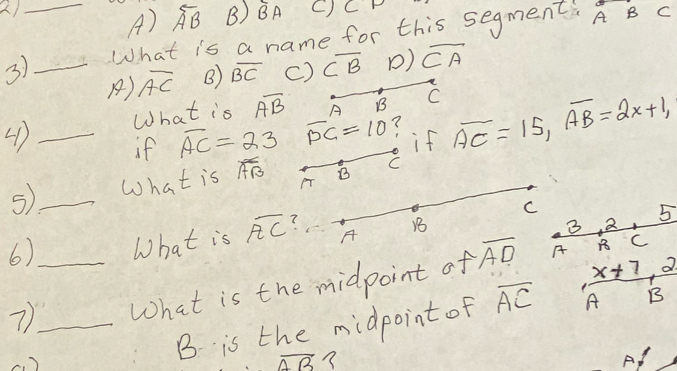 2)
A) AB B) BA C) C
3) What is a name for this segment. A B C
A) AC B) BC C) CB D) CA
4) What is AB A B C
if AC = 23 BC = 10?
5) What is AB A B C if AC = 15, AB = 2x+1,
6) What is AC? A B C
7) What is the midpoint of AD A 3 B 2 C 5
B is the midpoint of AC A x+7 B 2
AB?
A